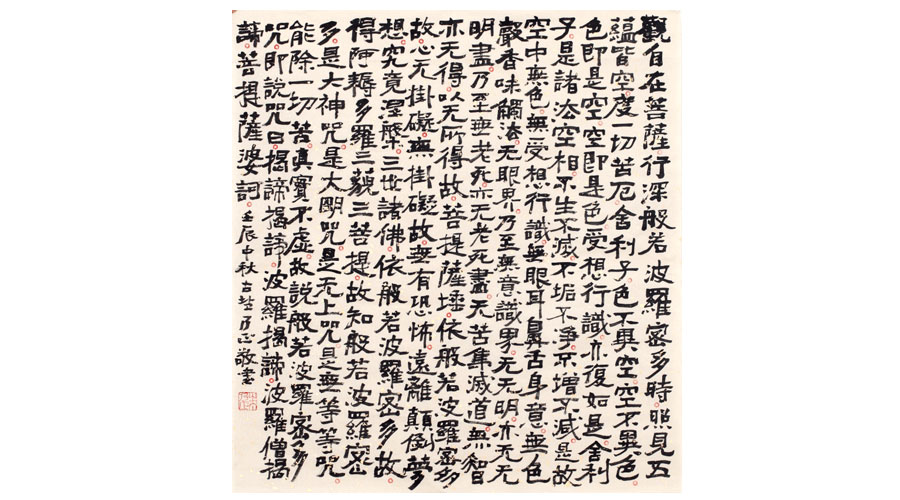 觀自在菩薩行深般若波羅密多時照見五
蘊皆空度一切苦厄舍利子色不異空空不異色
色即是空空即是色受想行識亦復如是舍利
子是諸法空相不生不滅不垢不淨不增不減是故
空中無色無受想行識無眼耳鼻舌身意無色
聲香味觸法无眼界乃至無意識界无无明亦无无
明盡乃至無老死亦无老死盡无苦集滅道無智
亦无得以无所得故菩提薩埵依般若波羅密多
故心无掛礙無掛礙故無有恐怖遠離顛倒夢
想究竟涅槃三世諸佛依般若波羅密多故
得阿耨多羅三藐三菩提故知般若波羅密
多是大神咒是大明咒是无上咒是無等等咒
能除一切苦真實不虛故說般若波羅密多
咒即說咒曰揭諦揭諦波羅揭諦波羅僧揭
諦菩提薩婆訶 壬辰中秋 敬書